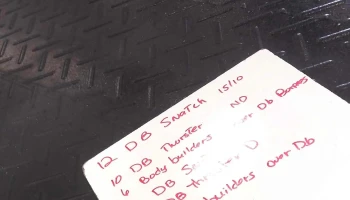 12 DB SNaTCH 15/10
10 DB Thurster ND
6 Body builders over Db Burpees
DB
DB thruster D
builders over Db